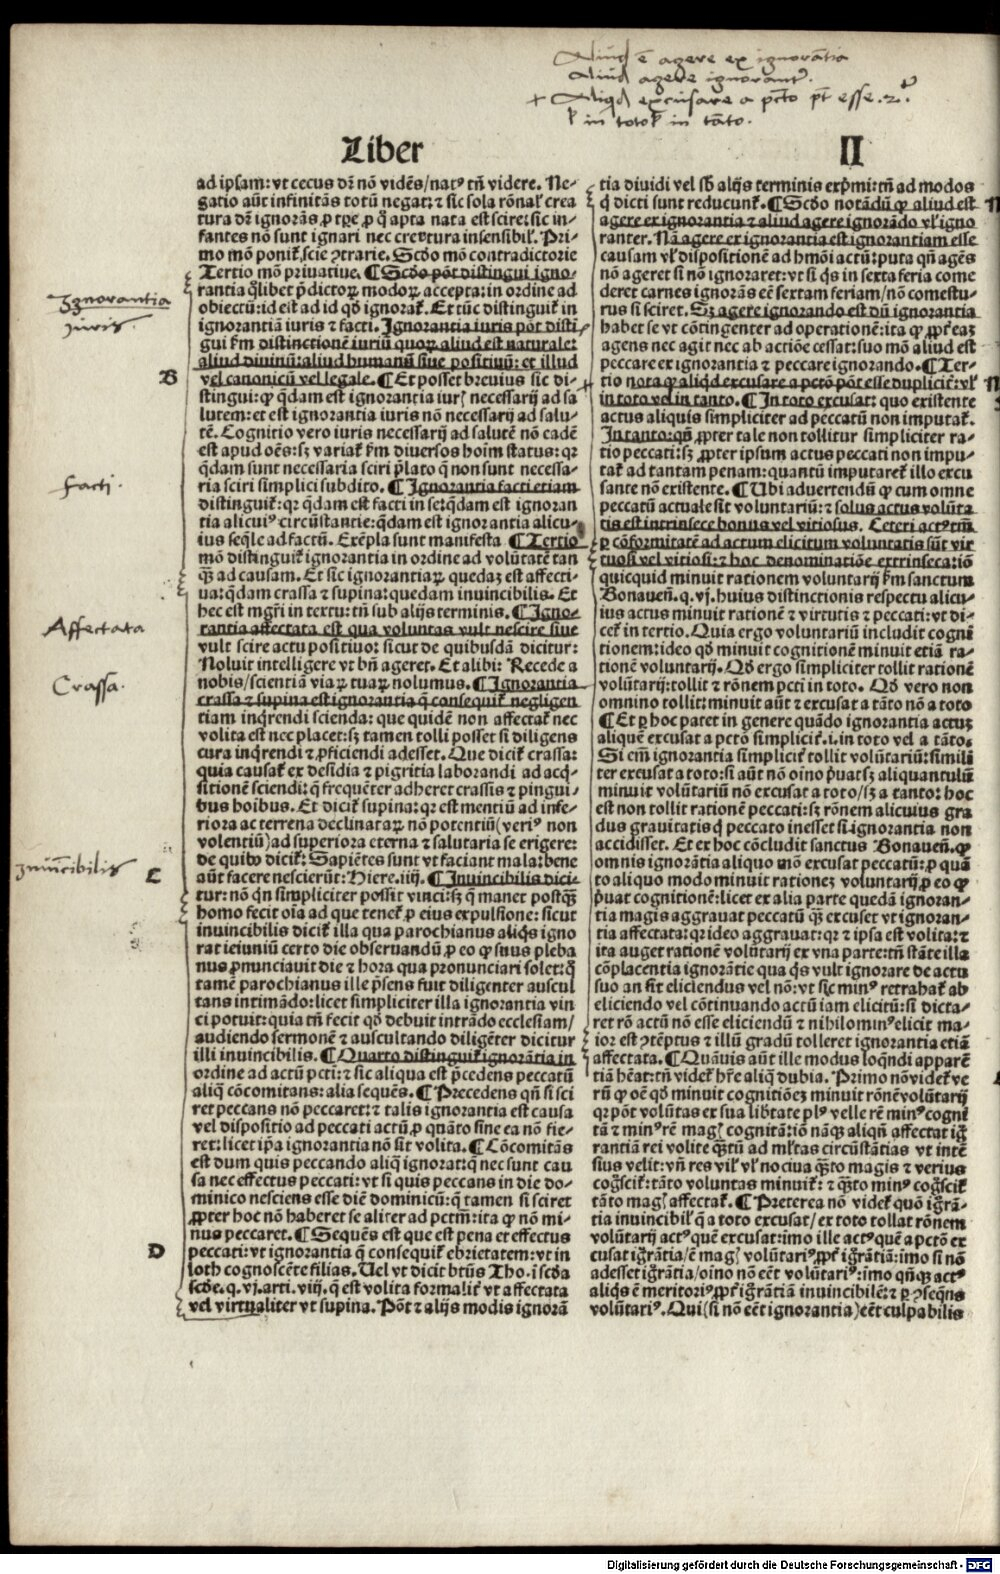 Aliud ē agere ex ignorātia
Aliud agere ignorant̄.
+ Aliqd excusare a pctō pt̄ esse .2r.
l in toto l in tāto.
Liber
II
ad ipsam: vt cecus dr̄ nō vidēs/natꝰ tn̄ videre. Ne-
gatio aūt infinitās totū negat: ⁊ sic sola rōnal' crea
tura dr̄ ignorās ꝓ tꝑe ꝓ q̄ apta nata est scire: sic in-
fantes nō sunt ignari nec creatura insensibil'. Pri-
mo mō ponit̄ scie ꝯtrarie. Scd̄o mō contradictorie
Tertio mō priuatiue. ¶ Scd̄o pōt distingui igno-
rantia q̄libet p̄dictoꝝ modoꝝ accepta: in ordine ad
obiectū: id est ad id qd̄ ignorat̄. Et tūc distinguit̄ in
ignorantiā iuris ⁊ facti. Ignorantia iuris pōt disti
gui ẜm distinctionē iuriū quoꝝ aliud est naturale:
aliud diuinū: aliud humanū siue positiuū: et illud
vel canonicū vel legale. ¶ Et posset breuius sic di-
stingui: ꝙ q̄dam est ignorantia iurꝭ necessarij ad sa
lutem: et est ignorantia iuris nō necessarij ad salu-
tē. Cognitio vero iuris necessarij ad salutē nō cadē
est apud oēs: sꝫ variat̄ ẜm diuersos hoim status: qꝛ
q̄dam sunt necessaria sciri p̄lato q̄ non sunt necessa-
ria sciri simplici subdito. ¶ Ignorantia facti etiam
distinguit̄: qꝛ q̄dam est facti in se: q̄dam est ignoran
tia alicuiꝰ circūstantie: q̄dam est ignorantia alicu-
ius seq̄le ad factū. Exēpla sunt manifesta ¶ Tertio
mō distinguit̄ ignorantia in ordine ad volūtatē tan
q̄ꝫ ad causam. Et sic ignorantiaꝝ quedaꝫ est affecti-
ua: q̄dam crassa ⁊ supina: quedam inuincibilis. Et
hec est mgr̄i in textu: tn̄ sub alijs terminis. ¶ Igno-
rantia affectata est qua voluntas vult nescire siue
vult scire actu positiuo: sicut de quibusdā dicitur:
Noluit intelligere vt bn̄ ageret. Et alibi: Recede a
nobis/scientiā viaꝝ tuaꝝ nolumus. ¶ Ignorantia
crassa ⁊ supina est ignorantia q̄ consequit̄ negligen
tiam inq̄rendi scienda: que quidē non affectat̄ nec
volita est nec placet: sꝫ tamen tolli posset si diligens
cura inq̄rendi ⁊ ꝓficiendi adesset. Que dicit̄ crassa:
quia causat̄ ex desidia ⁊ pigritia laborandi ad acq̄-
sitionē sciendi: q̄ frequēter adheret crassis ⁊ pingui-
bus hoibus. Et dicit̄ supina: qꝛ est mentiū ad infe-
riora ac terrena declinataꝝ nō potentiū (veriꝰ non
volentiū) ad superiora eterna ⁊ salutaria se erigere:
de quibꝰ dicit̄: Sapiētes sunt vt faciant mala: bene
aūt facere nescierūt: Hiere. iiij. ¶ Inuincibilis dici-
tur: nō qn̄ simpliciter possit vinci: sꝫ q̄ manet postq̄ꝫ
homo fecit oīa ad que tenet̄ ꝓ eius expulsione: sicut
inuincibilis dicit̄ illa qua parochianus aliq̄s igno
rat ieiuniū certo die obseruandū ꝓ eo ꝙ suus pleba
nus ꝓnunciauit die ⁊ hora qua pronunciari solet: q̄
tamē parochianus ille p̄sens fuit diligenter auscul
tans intimādo: licet simpliciter illa ignorantia vin
ci potuit: quia tn̄ fecit qd̄ debuit intrādo ecclesiam/
audiendo sermonē ⁊ auscultando diligēter dicitur
illi inuincibilis. ¶ Quarto distinguit̄ ignorātia in
ordine ad actū pctī: ⁊ sic aliqua est p̄cedens peccatū
aliq̄ cōcomitans: alia sequēs. ¶ Precedens qn̄ si sci
ret peccans nō peccaret: ⁊ talis ignorantia est causa
vel dispositio ad peccati actū ꝓ quāto sine ea nō fie-
ret: licet ip̄a ignorantia nō sit volita. ¶ Cōcomitās
est dum quis peccando aliq̄ ignorat: q̄ nec sunt cau
sa nec effectus peccati: vt si quis peccans in die do-
minico nesciens esse diē dominicū: q̄ tamen si sciret
ꝓpter hoc nō haberet se aliter ad pctm̄: ita ꝙ nō mi-
nus peccaret. ¶ Sequēs est que est pena et effectus
peccati: vt ignorantia q̄ consequit̄ ebrietatem: vt in
loth cognoscēte filias. Uel vt dicit btūs Tho. ī scd̄a
scd̄e. q. vj. arti. viij. q̄ est volita formalit̄ vt affectata
vel virtualiter vt supina. Pōt ⁊ alijs modis ignorā
tia diuidi vel sb̄ alijs terminis exp̄mi: tn̄ ad modos
q̄ dicti sunt reducunt̄. ¶ Scd̄o notādū ꝙ aliud est
agere ex ignorantia ⁊ aliud agere ignorādo vl' igno
ranter. Nā agere ex ignorantia est ignorantiam esse
causam vl' dispositionē ad hmōi actū: puta qn̄ agēs
nō ageret si nō ignoraret: vt si q̄s in sexta feria come
deret carnes ignorās eē sextam feriam/nō comestu-
rus si sciret. Sꝫ agere ignorando est dū ignorantia
habet se vt cōtingenter ad operationē: ita ꝙ ꝓpt̄ eaꝫ
agens nec agit nec ab actiōe cessat: suo mō aliud est
peccare ex ignorantia ⁊ peccare ignorando. ¶ Ter-
tio nota ꝙ aliqd̄ excusare a pctō pōt esse duplicit̄: vl'
in toto vel in tanto. ¶ In toto excusat: quo existente
actus aliquis simpliciter ad peccatū non imputat̄.
In tanto: qn̄ ꝓpter tale non tollitur simpliciter ra-
tio peccati: sꝫ ꝓpter ipsum actus peccati non impu-
tat̄ ad tantam penam: quantū imputaret̄ illo excu
sante nō existente. ¶ Ubi aduertendū ꝙ cum omne
peccatū actuale sit voluntariū: ⁊ solus actus volūta
tis est intrinsece bonus vel vitiosus. Ceteri actꝰ tm̄
ꝑ cōformitatē ad actum elicitum voluntatis sūt vir
tuosi vel vitiosi: ⁊ hoc denominatiōe extrinseca: iō
quicquid minuit rationem voluntarij ẜm sanctum
Bonauen̄. q. vj. huius distinctionis respectu alicu-
ius actus minuit rationē ⁊ virtutis ⁊ peccati: vt di-
cet̄ in tertio. Quia ergo voluntariū includit cogni
tionem: ideo qd̄ minuit cognitionē minuit etiā ra-
tionē voluntarij. Qd̄ ergo simpliciter tollit rationē
volūtarij: tollit ⁊ rōnem pctī in toto. Qd̄ vero non
omnino tollit: minuit aūt ⁊ excusat a tāto nō a toto
¶ Et ꝑ hoc patet in genere quādo ignorantia actuꝫ
aliquē excusat a pctō simplicit̄. i. in toto vel a tāto.
Si em̄ ignorantia simplicit̄ tollit voluntariū: simili
ter excusat a toto: si aūt nō oīno p̄uat sꝫ aliquantulū
minuit volūtariū nō excusat a toto/sꝫ a tanto: hoc
est non tollit rationē peccati: sꝫ rōnem alicuius gra
dus grauitatis q̄ peccato inesset si ignorantia non
accidisset. Et ex hoc cōcludit sanctus Bonauen̄. ꝙ
omnis ignorātia aliquo mō excusat peccatū: ꝓ quā
to aliquo modo minuit rationeꝫ voluntarij ꝓ eo ꝙ
p̄uat cognitionē: licet ex alia parte quedā ignoran-
tia magis aggrauat peccatū q̄ꝫ excuset vt ignoran-
tia affectata: qꝛ ideo aggrauat: qꝛ ⁊ ipsa est volita: ⁊
ita auget rationē volūtarij ex vna parte: tn̄ stāte illa
cōplacentia ignorātie qua q̄s vult ignorare de actu
suo an sit eliciendus vel nō: vt sic minꝰ retrahat̄ ab
eliciendo vel cōtinuando actū iam elicitū: si dicta-
ret rō actū nō esse eliciendū ⁊ nihilominꝰ elicit ma-
ior est ꝯtēptus ⁊ illū gradū tolleret ignorantia etiā
affectata. ¶ Quāuis aūt ille modus loq̄ndi apparē
tiā hēat: tn̄ videt̄ hr̄e aliq̄ dubia. Primo nō videt̄ ve
rū ꝙ oē qd̄ minuit cognitiōeꝫ minuit rōnē volūtarij
qꝛ pōt volūtas ex sua lib̄tate plꝰ velle rē minꝰ cogni
tā ⁊ minꝰ rē magꝭ cognitā: iō nāqꝫ aliqn̄ affectat iḡ
rantiā rei volite q̄ꝫtū ad ml̄tas circūstātias vt intē
sius velit: vn̄ res vil' vl' nociua q̄ꝫto magis ⁊ verius
coḡscit̄: tāto voluntas minuit̄: ⁊ q̄ꝫto minꝰ coḡscit̄
tāto magꝭ affectat̄. ¶ Preterea nō videt̄ quō iḡrā-
tia inuincibil' q̄ a toto excusat/ex toto tollat rōnem
volūtarij actꝰ quē excusat: imo ille actꝰ quē a pctō ex
cusat iḡrātia/ē magꝭ volūtariꝰ ꝓpt̄ iḡrātiā: imo si nō
adesset iḡrātia/oīno nō eēt volūtariꝰ: imo qn̄qꝫ actꝰ
aliq̄s ē meritoriꝰ ꝓpt̄ iḡrātiā inuincibilē: ⁊ ꝑ ꝯseq̄ns
volūtariꝰ. Qui (si nō eēt ignorantia) eēt culpabilis
Ignorantia
iuris.
B
facti.
Affectata
Crassa.
Inuīcibilis
C
D
Digitalisierung gefördert durch die Deutsche Forschungsgemeinschaft - DFG